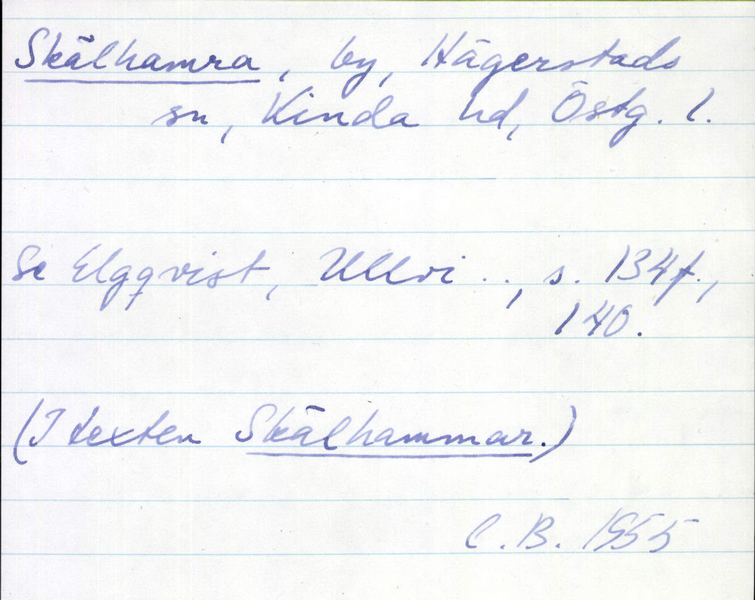 Skälhamra, by, Hägerstads
sn, Kinda hd, Östg. l.
Se Elgqvist, Ullvi . ., s. 134f.,
140.
(I texten Skälhammar.)
C. B. 1955